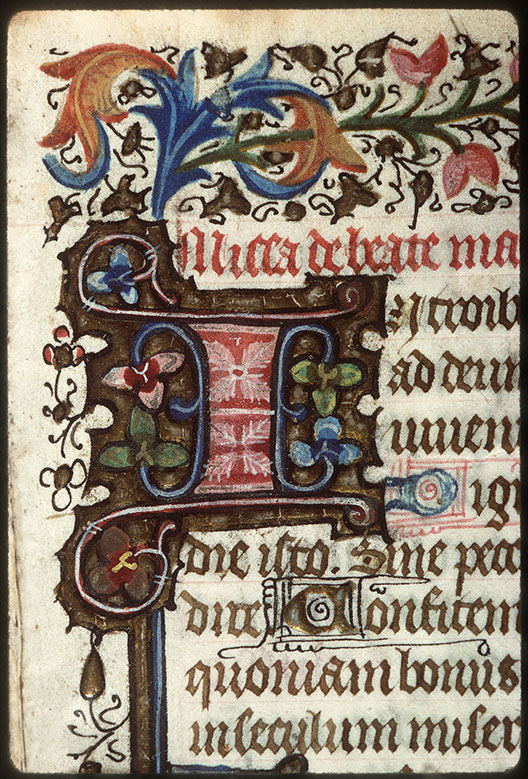 Missa de beate ma
INtroib
ad deum
iuuen
Dign
die isto. Sine pecc
dire Confitem
quoniam bonus
in seculum miser